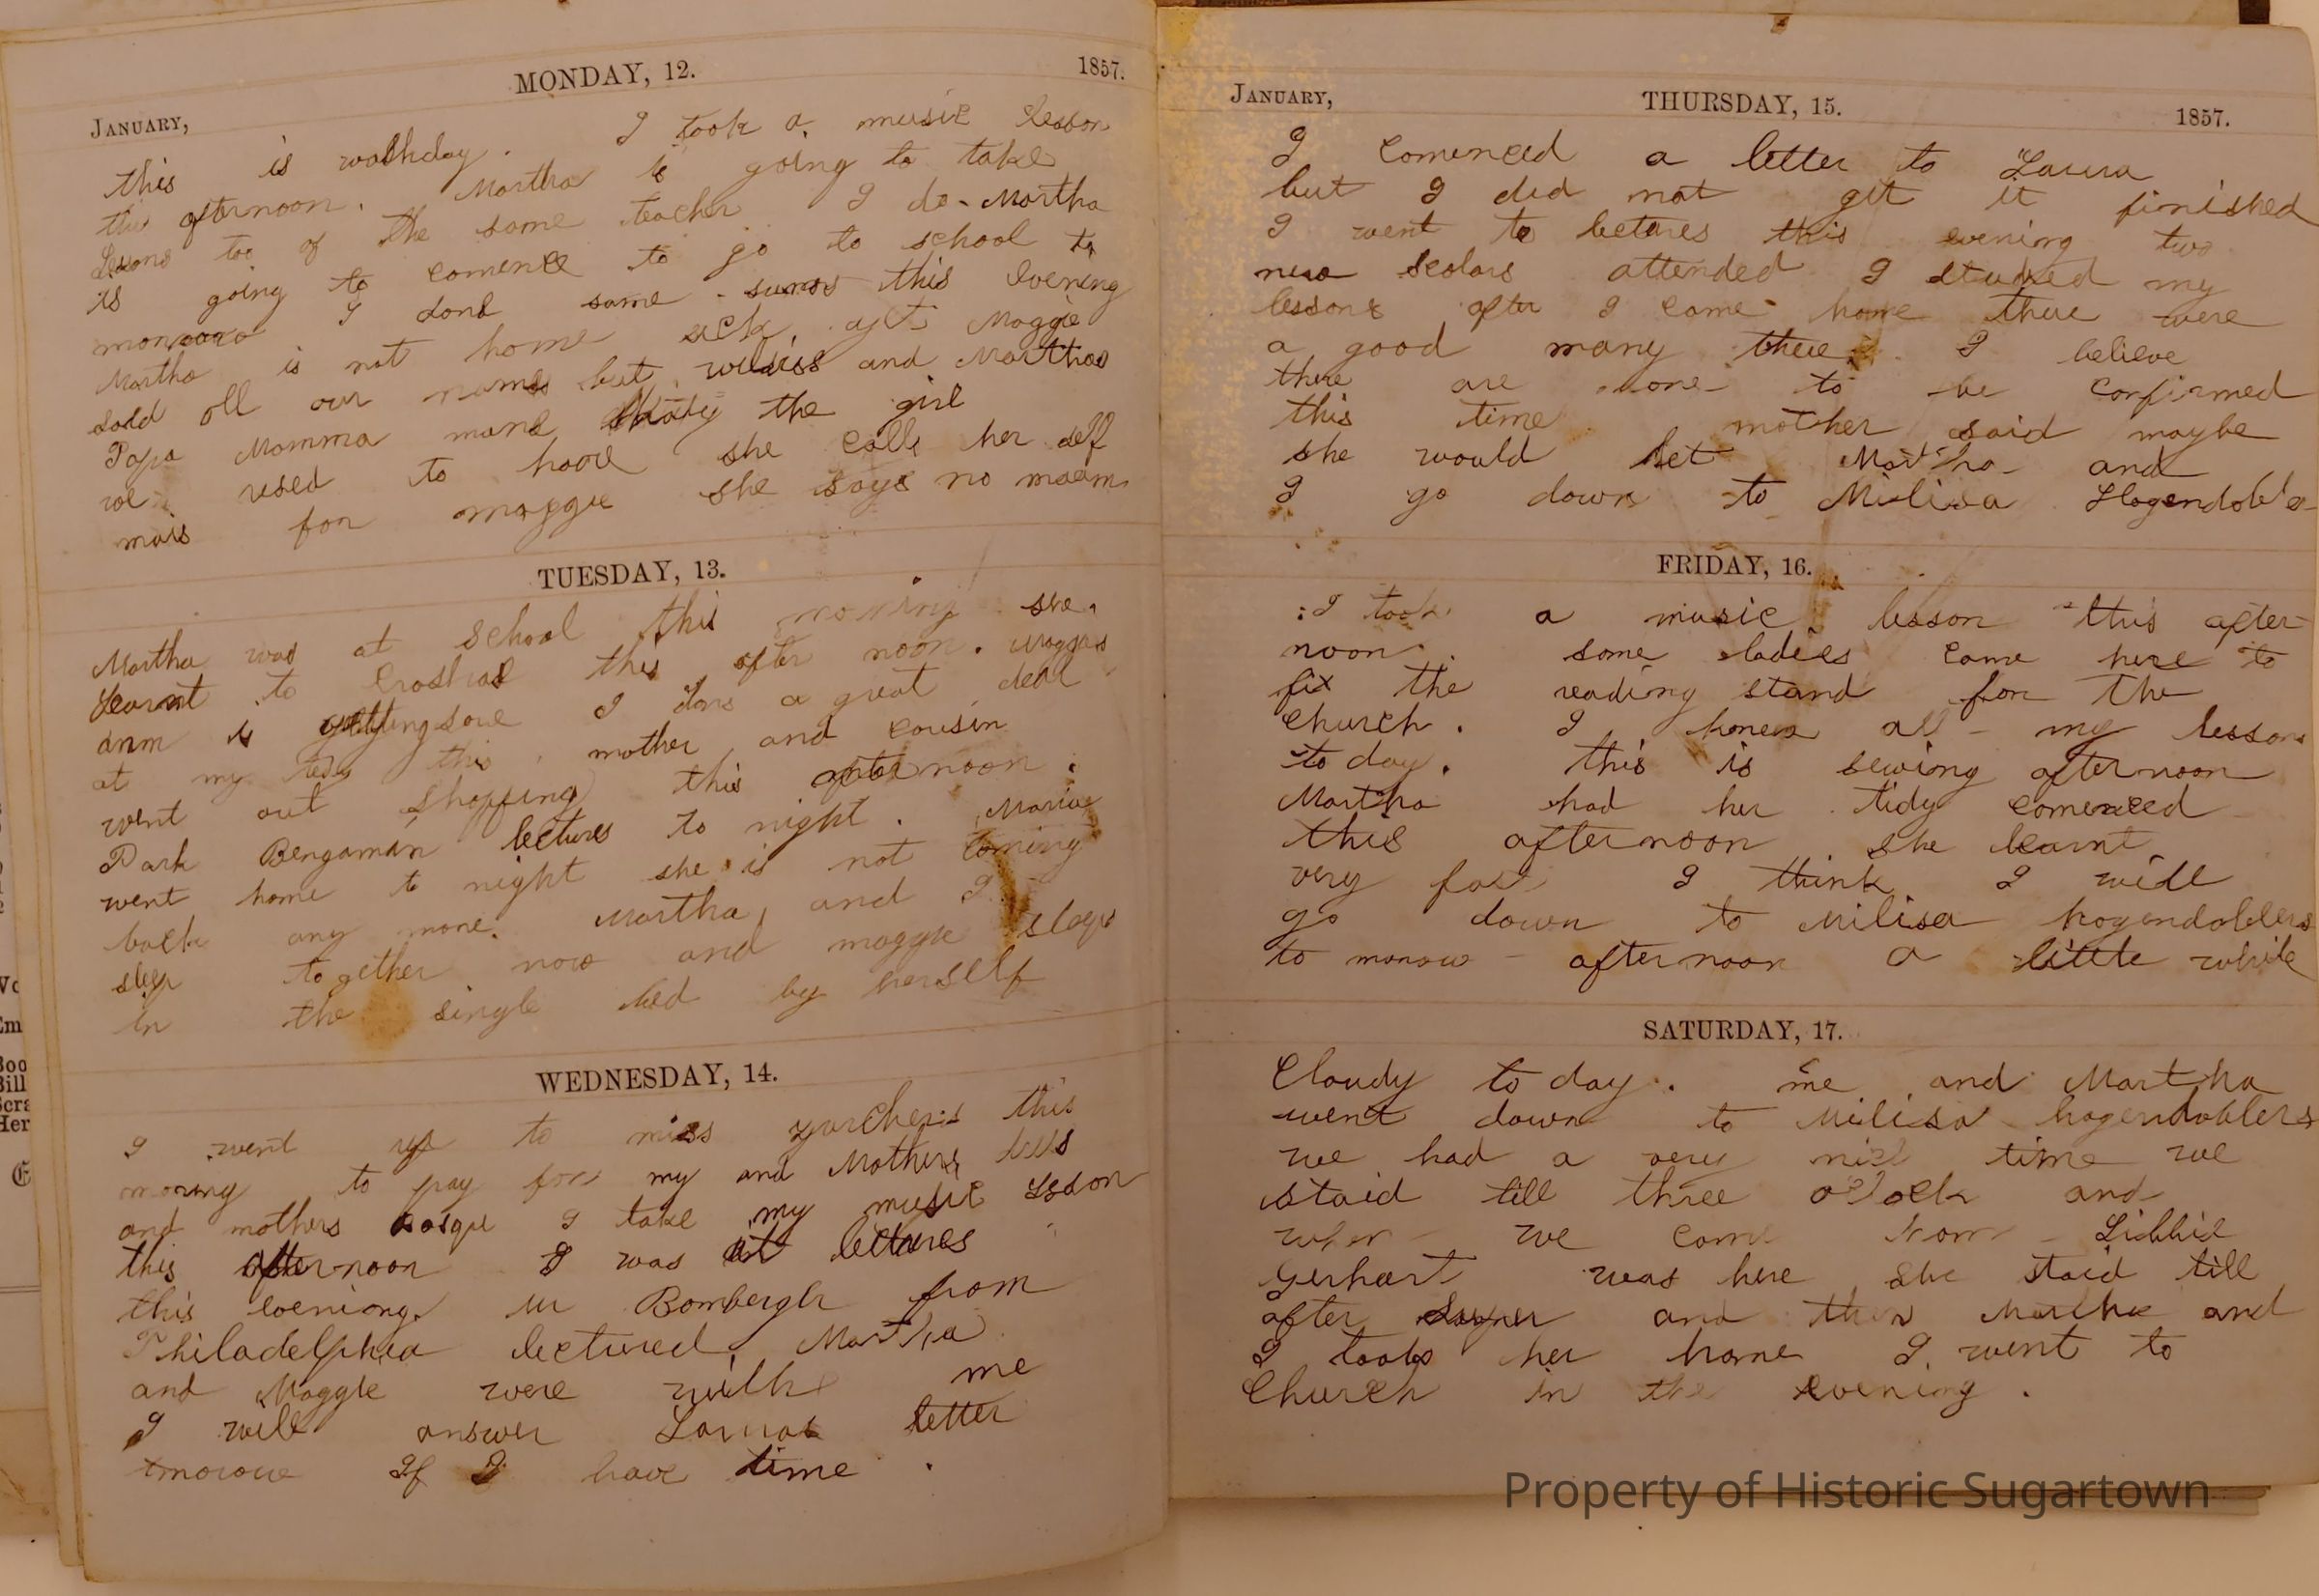 JANUARY, MONDAY, 12. 1857.
this is washday. I took a music lesson
this afternoon. Martha is going to take
Lessons too of the same teacher I do. Martha
is going to comence to go to school to
morrow I done some sums this Evening
Martha is not home yet Maggie
said all our names but and Marthas
Papa Momma mane the girl
we used to have she calls her self
mais for maggie she says no maam
TUESDAY, 13.
Martha was at school this morning she
learnt to this after noon. Maggies
arm is getting sore I done a great deal
at my tidy this mother and cousin
went out shopping this after noon.
Park Bengamin lectures to night. Maria
went home to night she is not coming
back any more. Martha and I
sleep together now and maggie sleeps
in the single bed by herself
WEDNESDAY, 14.
I went up to miss this
morning to pay for my and Mothers
and mothers basque I take my music Lesson
this afternoon I was at lectures
this Evening. Mr Bombergh from
Philadelphia lectured. Martha
and Maggie were with me
I will answer Lauras letter
tmorow If I have time.
JANUARY, THURSDAY, 15. 1857.
I comenced a letter to Laura
but I did not get it finished
I went to lectures this evening two
new scolars attended I studied my
lessons after I come home there were
a good many there. I believe
there are none to be confirmed
this time mother said maybe
she would let Martha and
I go down to Milisa Hogendobles
FRIDAY, 16.
I took a music lesson this after
noon. some ladies came here to
fix the reading stand for the
Church. I all my lessons
to day. this is sewing afternoon
Martha had her tidy comenced
this afternoon she learnt
very fast I think. I will
go down to Milisa hogendoblers
to morow afternoon a little while
SATURDAY, 17.
Cloudy to day. me and Martha
went down to Milisa hogendoblers
we had a very nice time we
staid till three oClock and
when we come hom Libbie
Gerhart was here she staid till
after super and then Martha and
I took her home I went to
Church in the evening.
Property of Historic Sugartown